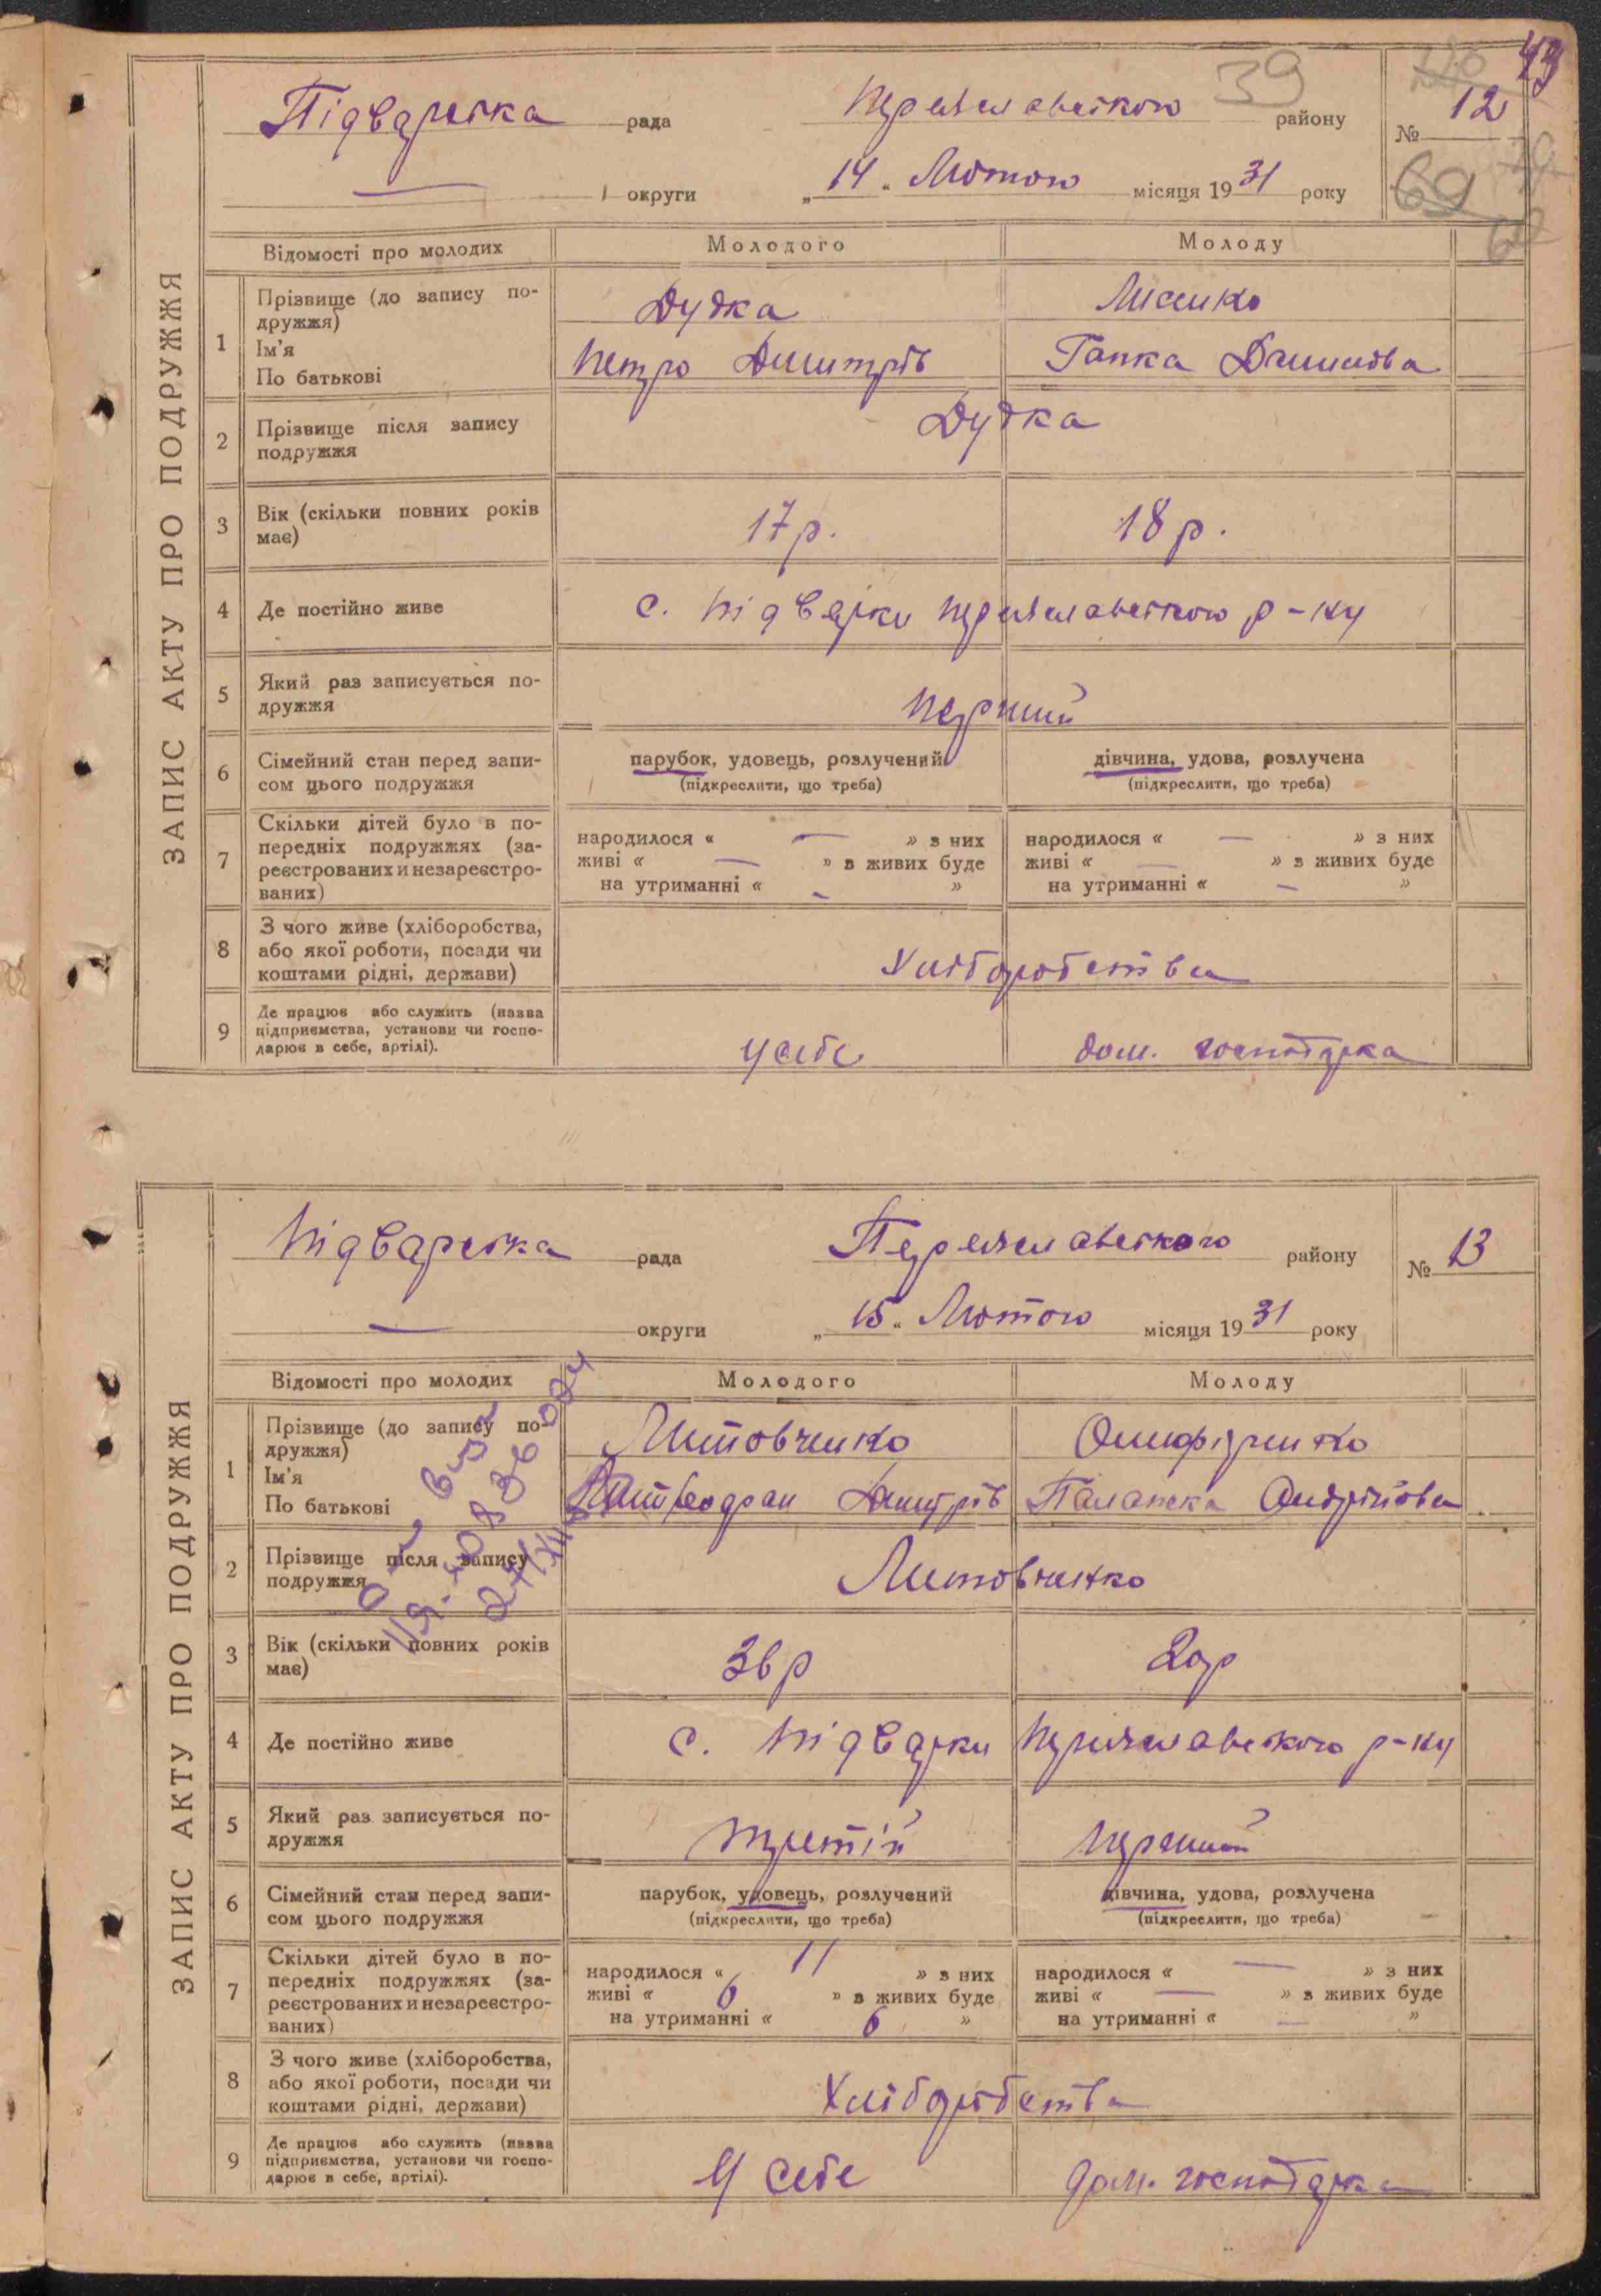 43
39
ЗАПИС АКТУ ПРО ПОДРУЖЖЯ
Підварська рада Переяславського району № 12
— округи „14„ Лютого місяця 1931 року
69
Відомості про молодих Молодого Молоду
1 Прізвище (до запису по-
дружжя)
Ім'я
По батькові
Дудка Лисенко
Петро Дмитрів Гапка Данилова
2 Прізвище після запису
подружжя
Дудка
3 Вік (скільки повних років
має)
17 р. 18 р.
4 Де постійно живе с. Підварки Переяславського р-ну
5 Який раз записується по-
дружжя
Перший
6 Сімейний стан перед запи-
сом цього подружжя
парубок, удовець, розлучений дівчина, удова, розлучена
(підкреслити, що треба) (підкреслити, що треба)
7 Скільки дітей було в по-
передніх подружжях (за-
реєстрованих и незареєстро-
ваних)
народилося « — » з них народилося « — » з них
живі « — » з живих буде живі « — » з живих буде
на утриманні « - » на утриманні « - »
8 З чого живе (хліборобства,
або якої роботи, посади чи
коштами рідні, держави)
Хліборобства
9 Де працює або служить (назва
підприємства, установи чи госпо-
дарює в себе, артілі).
у себе дом. господарка
ЗАПИС АКТУ ПРО ПОДРУЖЖЯ
Підварська рада Переяславського району № 13
— округи „15„ Лютого місяця 1931 року
Відомості про молодих Молодого Молоду
1 Прізвище (до запису по-
дружжя)
Ім'я
По батькові
Литовченко Онифіренко
Дмитрів Палажка Андріїова
2 Прізвище після запису
подружжя
Литовченко
3 Вік (скільки повних років
має)
36 р 20 р
4 Де постійно живе с. Підварки Переяславського р-ну
5 Який раз записується по-
дружжя
третій перший
6 Сімейний стан перед запи-
сом цього подружжя
парубок, удовець, розлучений дівчина, удова, розлучена
(підкреслити, що треба) (підкреслити, що треба)
7 Скільки дітей було в по-
передніх подружжях (за-
реєстрованих и незареєстро-
ваних)
народилося « 11 » з них народилося « — » з них
живі « 6 » з живих буде живі « — » з живих буде
на утриманні « 6 » на утриманні « — »
8 З чого живе (хліборобства,
або якої роботи, посади чи
коштами рідні, держави)
Хліборобства
9 Де працює або служить (назва
підприємства, установи чи госпо-
дарює в себе, артілі).
У себе дом. господарка